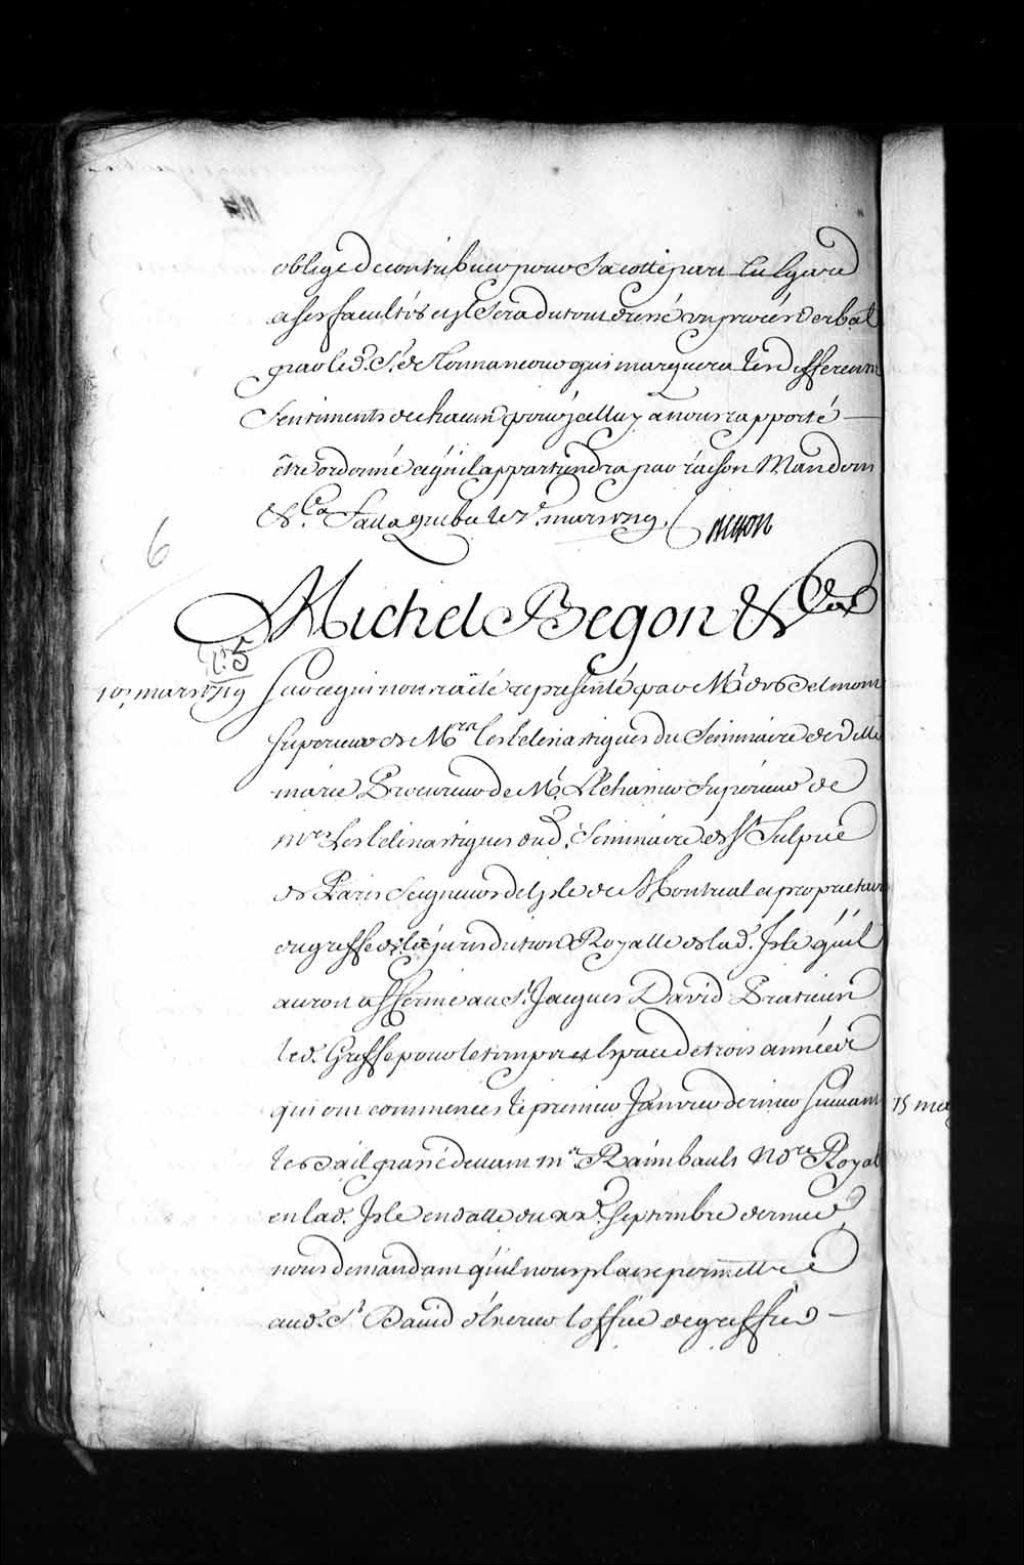 obligé de contribuer pour sa cotte part eu Egard
a ses facultés et y sera du tout dressé un procés verbal
par le d. Sr. de qui marquera les differents
Sentiments de chacun pour jcelluy a nous rapporté
être ordonné ce qu'il appartiendra par raison Mandons
&ca. fait a quebec le 7e. mars 1719. Begon
6
Michel Begon &ca
5
10e. mars 1719
Sur ce qui nous a êté representé par Mr. de Belmont
superieur de Mrs les Eclesiastiques du Seminaire de Ville
marie Procureur de Mr. Superieur de
Mrs Les Eclesiastiques dud. Seminaire de St Sulpice
de Paris Seigneurs de L'jsle de Montreal et proprietaires
du greffe de la jurisdiction Royalle de lad. Jsle qu'il
auroit affermé au Sr. Jacques David Praticien
led. Greffe pour le temps et Espace de trois années
qui ont commencés le premier Janvier dernier suivant
le bail passé devant me. Raimbault Nore. Royal
en lad. Jsle en datte du septembre dernier
nous demandant qu'il nous plaise permettre
aud. Sr. David d'Exercer l'office de greffier
15 mars